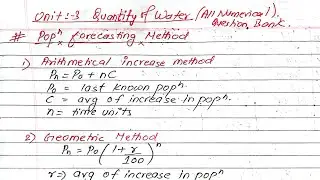 Unit:-3 Quantity of Water (All Numerical).
Question Bank.
# Popⁿ forecasting Method
1) Arithmetical increase method
Pn = Po + nC
Po = last known popⁿ
C = avg of increase in popⁿ.
n = time units
2) Geometric Method
Pn = Po (1 + r/100)ⁿ
r => avg of increase in popⁿ